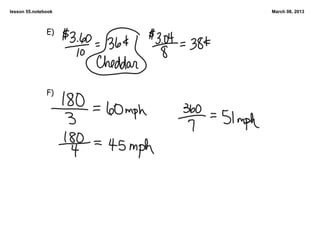 lesson 05.notebook March 08, 2013
E) $3.60/10 = 36¢ $3.04/8 = 38¢
Cheddar
F) 180/3 = 60mph 360/7 = 51mph
180/4 = 45mph